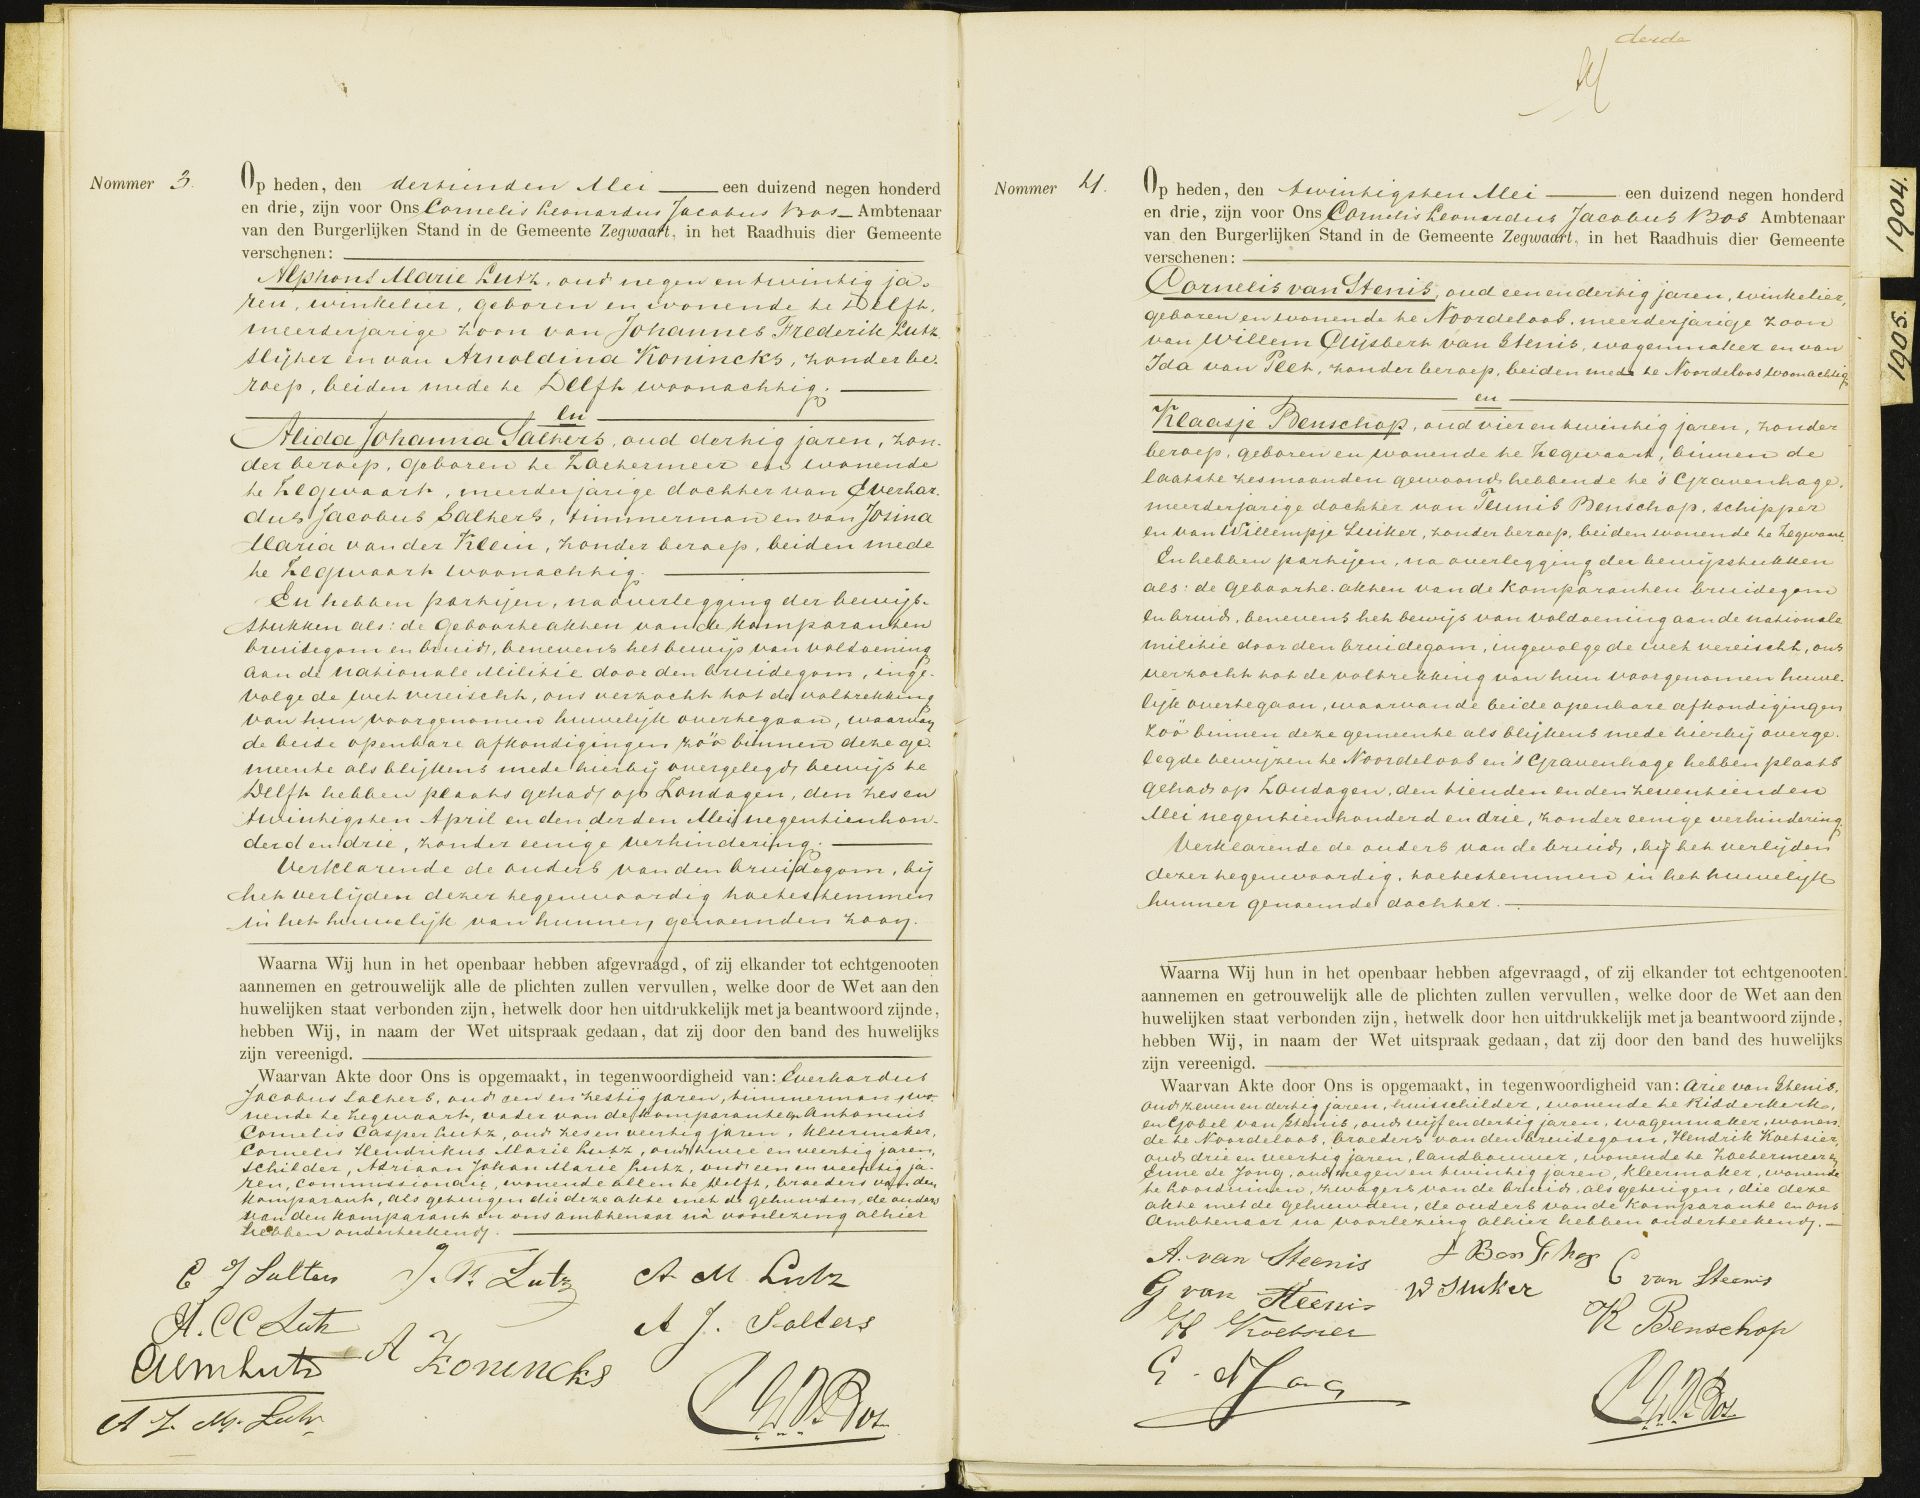 Nommer 3.
Op heden, den dertienden Mei een duizend negen honderd
en drie, zijn voor Ons Cornelis Leonardus Jacobus Bos Ambtenaar
van den Burgerlijken Stand in de Gemeente Zegwaart, in het Raadhuis dier Gemeente
verschenen:
Alphons Marie Lutz, oud negen en twintig ja-
ren, winkelier, geboren en wonende te Delft,
meerderjarige zoon van Johannes Frederik Lutz
slijter en van Arnoldina Konincks, zonder be-
roep, beiden mede te Delft woonachtig.
en
Alida Johanna Salters, oud dertig jaren, zon-
der beroep, geboren te Zoetermeer en wonende
te Zegwaart, meerderjarige dochter van Everhar-
dus Jacobus Salters, timmerman en van Josina
Maria van der Klein, zonder beroep, beiden mede
te Zegwaart woonachtig.
En hebben partijen, na overlegging der bewijs-
stukken als: de geboorteakten van de komparanten
bruidegom en bruid, benevens het bewijs van voldoening
aan de nationale Militie door den bruidegom, inge-
volge de wet vereischt, ons verzocht tot de voltrekking
van hun voorgenomen huwelijk overtegaan, waarvan
de beide openbare afkondigingen zóó binnen deze ge-
meente als blijkens mede hierbij overgelegd bewijs te
Delft hebben plaats gehad op Zondagen, den zes en
twintigsten April en den derden Mei negentienhon-
derd en drie, zonder eenige verhindering.
Verklarende de ouders van den bruidegom, bij
het verlijden dezer tegenwoordig toetestemmen
in het huwelijk van hunnen genoemden zoon.
Waarna Wij hun in het openbaar hebben afgevraagd, of zij elkander tot echtgenooten
aannemen en getrouwelijk alle de plichten zullen vervullen, welke door de Wet aan den
huwelijken staat verbonden zijn, hetwelk door hen uitdrukkelijk met ja beantwoord zijnde,
hebben Wij, in naam der Wet uitspraak gedaan, dat zij door den band des huwelijks
zijn vereenigd.
Waarvan Akte door Ons is opgemaakt, in tegenwoordigheid van: Everhardus
Jacobus Salters, oud een en zestig jaren, timmerman, wo-
nende te Zegwaart, vader van de komparante en Antonius
Cornelis Casper Lutz, oud zes en veertig jaren, kleermaker,
Cornelis Hendrikus Marie Lutz, oud twee en veertig jaren,
schilder, Adriaan Johan Marie Lutz, oud een en veertig ja-
ren, commissionair, wonende allen te Delft, broeders van den
komparant, als getuigen die deze akte met de gehuwden, de ouders
van den komparant en ons ambtenaar na voorlezing alhier
hebben onderteekend.
E J Salters J. F. Lutz A M Lutz
A. C C Lutz A J. Salters
CHM Lutz A Konincks
A J. M. Lutz CLJ Bos

derde
Nommer 4.
Op heden, den twintigsten Mei een duizend negen honderd
en drie, zijn voor Ons Cornelis Leonardus Jacobus Bos Ambtenaar
van den Burgerlijken Stand in de Gemeente Zegwaart, in het Raadhuis dier Gemeente
verschenen:
Cornelis van Stenis, oud een en dertig jaren, winkelier,
geboren en wonende te Noordeloos, meerderjarige zoon
van Willem Gijsbert van Stenis, wagenmaker en van
Ida van Peet, zonder beroep, beiden mede te Noordeloos woonachtig
en
Klaasje Benschop, oud vier en twintig jaren, zonder
beroep, geboren en wonende te Zegwaart, binnen de
laatste zes maanden gewoond hebbende te 's Gravenhage,
meerderjarige dochter van Teunis Benschop, schipper
en van Willempje Luiker, zonder beroep, beiden wonende te Zegwaart.
En hebben partijen, na overlegging der bewijsstukken
als: de geboorte-akten van de komparanten bruidegom
en bruid, benevens het bewijs van voldoening aan de nationale
militie door den bruidegom, ingevolge de wet vereischt, ons
verzocht tot de voltrekking van hun voorgenomen huwe-
lijk overtegaan, waarvan de beide openbare afkondigingen
zóó binnen deze gemeente als blijkens mede hierbij overge-
legde bewijzen te Noordeloos en 's Gravenhage hebben plaats
gehad op Zondagen, den tienden en den zeventienden
Mei negentienhonderd en drie, zonder eenige verhindering.
Verklarende de ouders van de bruid, bij het verlijden
dezer tegenwoordig, toetestemmen in het huwelijk
hunner genoemde dochter.
Waarna Wij hun in het openbaar hebben afgevraagd, of zij elkander tot echtgenooten
aannemen en getrouwelijk alle de plichten zullen vervullen, welke door de Wet aan den
huwelijken staat verbonden zijn, hetwelk door hen uitdrukkelijk met ja beantwoord zijnde,
hebben Wij, in naam der Wet uitspraak gedaan, dat zij door den band des huwelijks
zijn vereenigd.
Waarvan Akte door Ons is opgemaakt, in tegenwoordigheid van: Arie van Stenis,
oud zeven en dertig jaren, huisschilder, wonende te Ridderkerk,
en Gobel van Stenis, oud vijf en dertig jaren, wagenmaker, wonen-
de te Noordeloos, broeders van den bruidegom, Hendrik Koetsier,
oud drie en veertig jaren, landbouwer, wonende te Zoetermeer en
de Jong, oud negen en twintig jaren, kleermaker, wonende
te Loosduinen, zwagers van de bruid, als getuigen, die deze
akte met de gehuwden, de ouders van de komparante en ons
Ambtenaar na voorlezing alhier hebben onderteekend.
A. van Steenis T Benschop C van Steenis
G van Steenis W Luiker
H Koetsier K Benschop
E. d Jong CLJ Bos
1904.
1905.